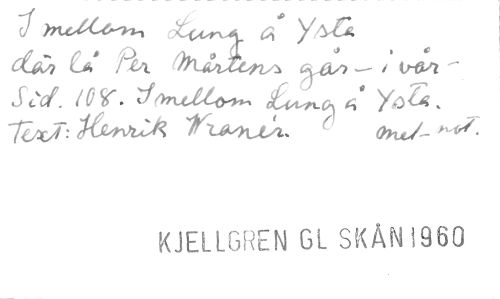 I mellom Lung å Ysta
där lå Per Mårtens går – i vår –
Sid. 108. I mellom Lung å Ysta.
Text: Henrik Wranér. mel-not.
KJELLGREN GL SKÅN 1960